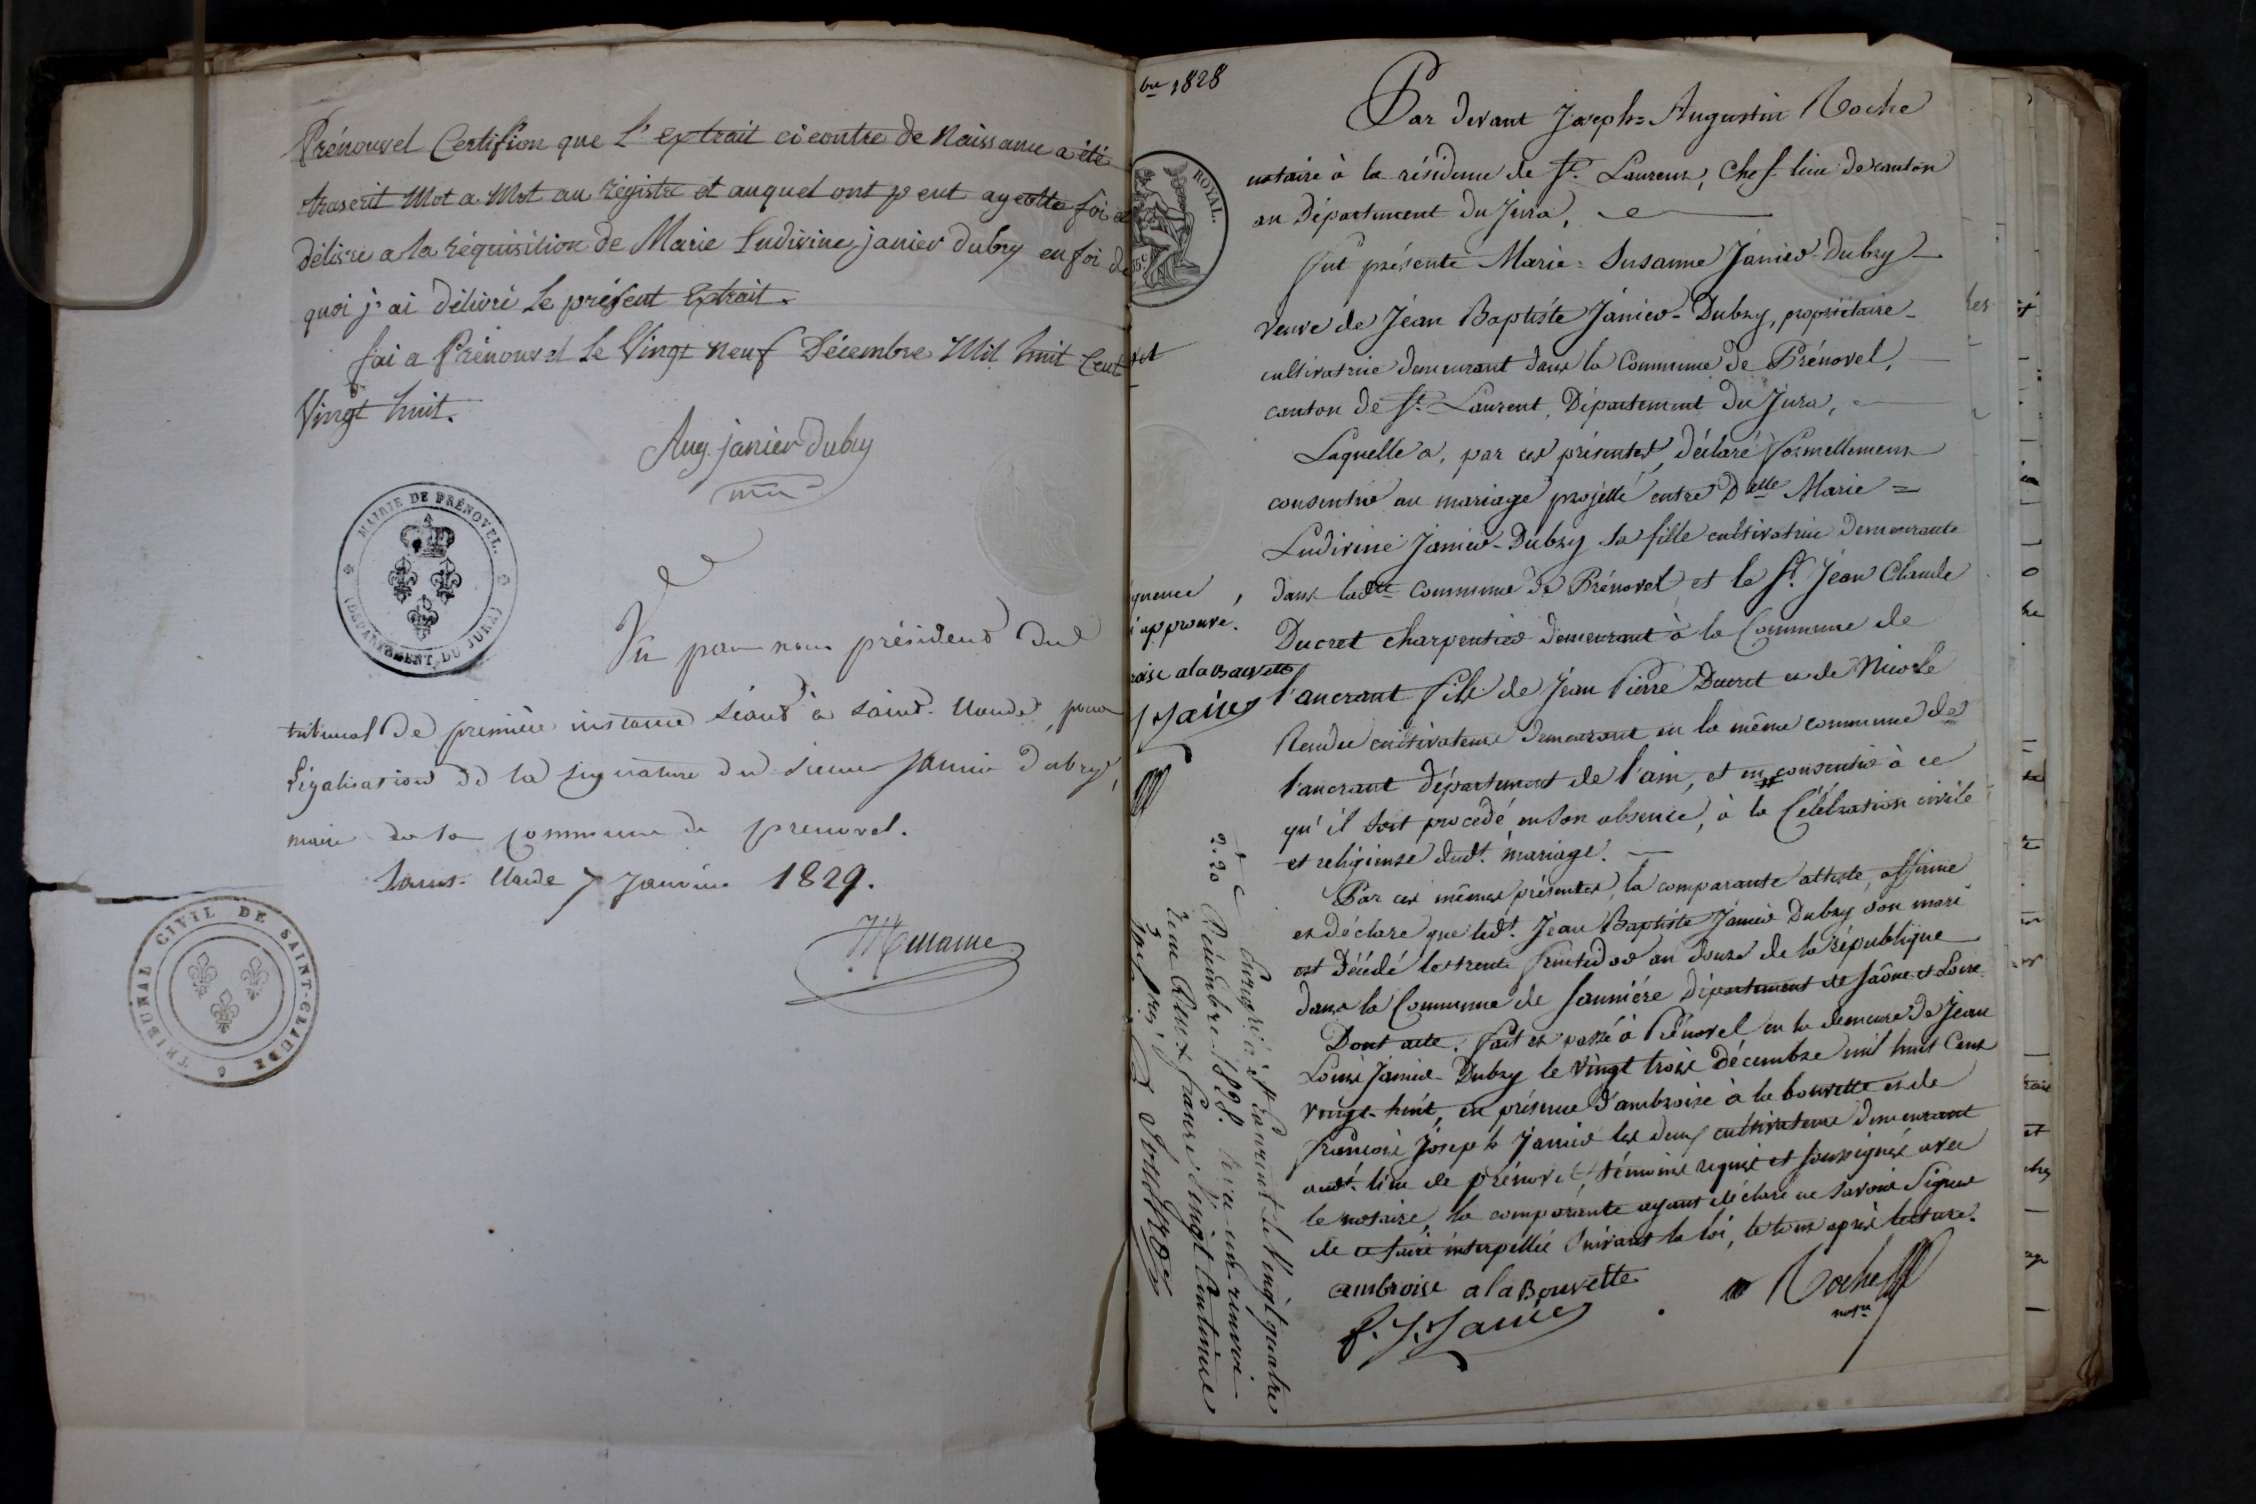 Prénouvel Certifion que L'extrait ci contre de Naissance a été
trascrit Mot a Mot au régistre et auquel ont peut ajoutter foi et
délivré a la réquisition de Marie Ludivine janier dubry en foi de
quoi j'ai délivré le présent Extrait.
fai a Prénouvel le Vingt neuf Décembre Mil huit Cent
Vingt huit.
Aug. janier Dubry
MAIRIE DE PRÉNOVEL.
(DÉPARTEMENT DU JURA)
Vu par nous président du
tribunal de première instance séant à Saint-Claude, pour
légalisation de la signature du sieur Janier Dubry,
maire de la commune de prenovel.
Saint-Claude 7 Janvier 1829.
TRIBUNAL CIVIL DE SAINT-CLAUDE
bre 1828
ROYAL.
35 c
quence,
approuvé.
roise a la Bauvette
J. Janier
Par devant Joseph-Augustin Roche
notaire à la résidence de St. Laurent, Chef lieu de canton
au Département du Jura,
fut présente Marie-Susanne Janier-Dubry
veuve de Jean Baptiste Janier-Dubry, propriétaire
cultivatrice demeurant dans la Commune de Prénovel,
canton de St. Laurent, Département du Jura,
Laquelle a, par ces présentes, déclaré formellement
consentir au mariage projetté entre Delle Marie=
Ludivine Janier-Dubry sa fille cultivatrice demeurante
dans ladte Commune de Prénovel et le Sr. Jean Claude
Ducret charpentier demeurant à la Commune de
l'ancrant fils de Jean Pierre Ducret et de Nicole
Rendu cultivateurs demeurant en la même commune de
l'ancrant département de l'ain, et en consentir à ce
qu'il soit procédé en son absence, à la Célébration civile
et religieuse dudt. mariage.
Par ces mêmes présentes, la comparante atteste, affirme
et déclare que ledt. Jean Baptiste Janier Dubry son mari
est Décédé le trente fructidor an douze de la république
dans la Commune de Saunière Département de Saône et Loire.
Dont acte. fait et passé à Prénovel en la demeure de Jean
Louis Janier-Dubry le vingt trois décembre mil huit Cent
vingt-huit, en présence d'ambroise à la bouvette et de
François Joseph Janier les deux cultivateurs demeurant
audt. lieu de prénovel, témoins requis et soussignés avec
le notaire, la comparante ayant déclaré ne savoir Signer
de ce faire interpellée suivant la loi, le tout après lecture.
ambroise a la Bouvette
f. J. Janier
Roche
nore
2. 20 c
Enregistré à St Laurent le Vingt quatre
Décembre 1828. Reçu un renvoi
Reçu deux francs vingt Centimes